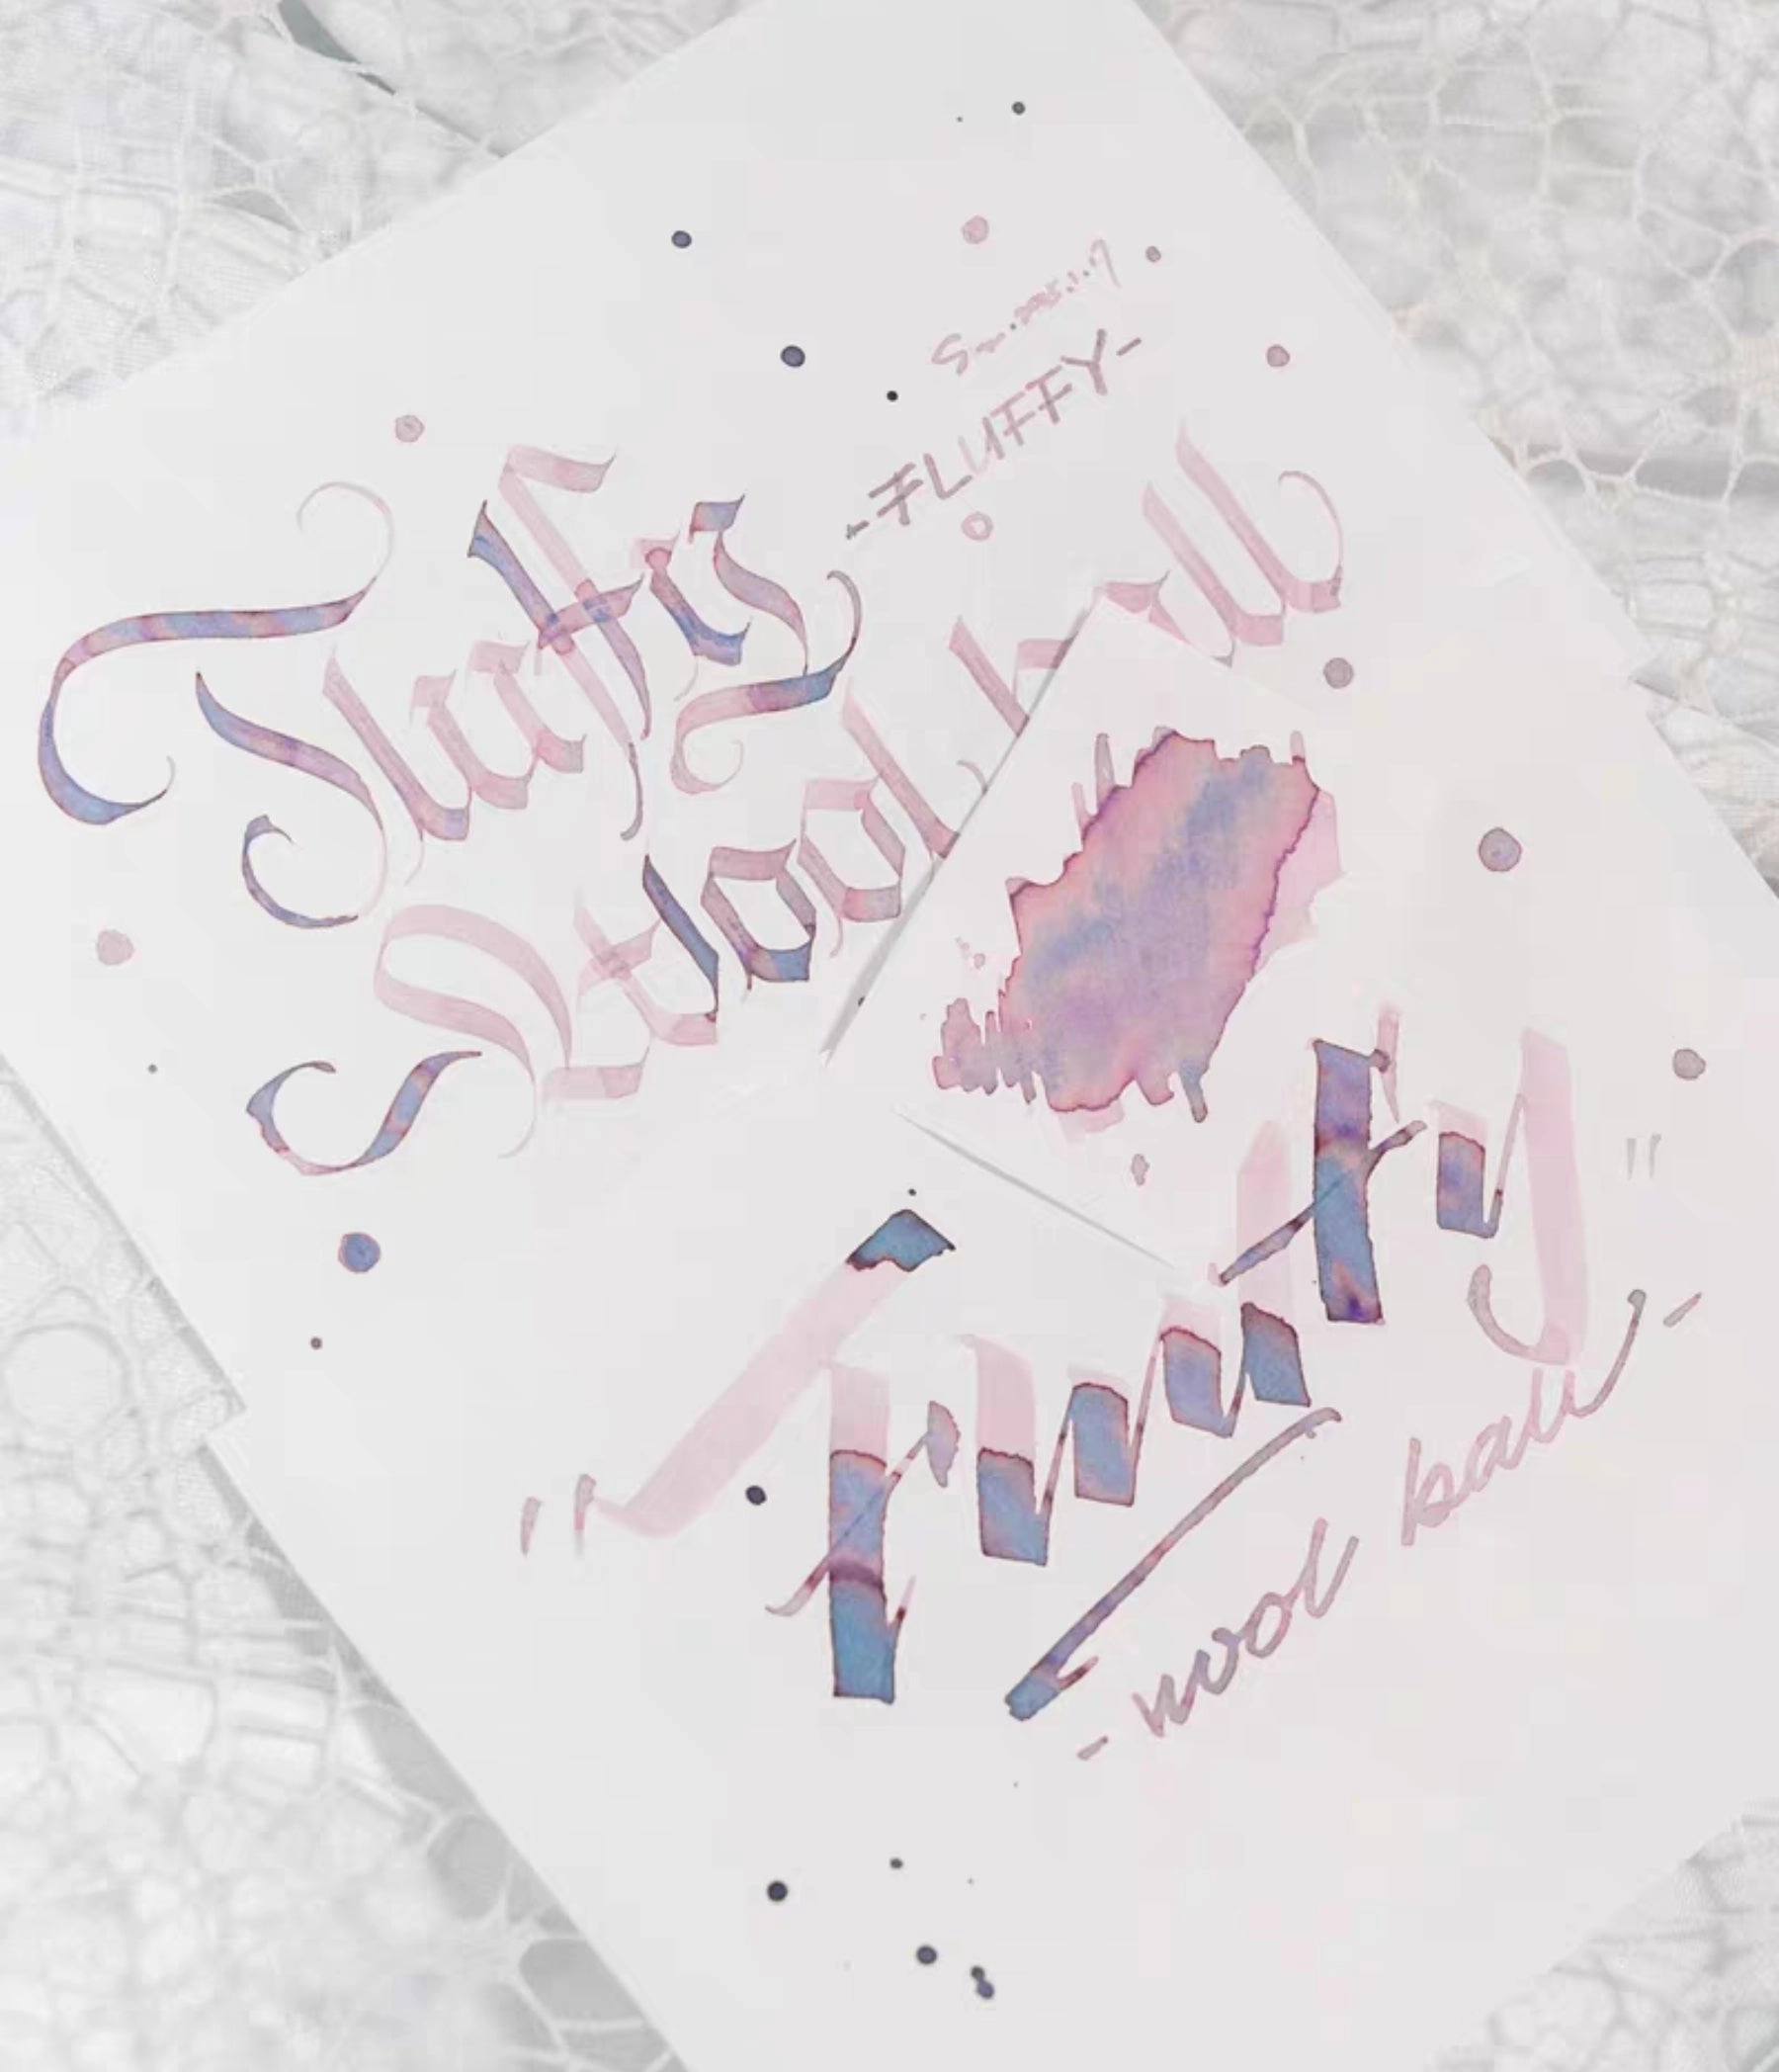 -FLUFFY-
Fluffy
Wool ball
"Fluffy"
- wool ball -